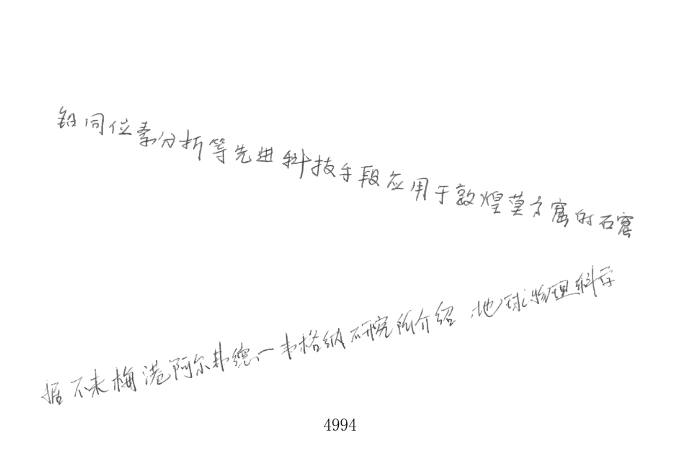 铅同位素分析等先进科技手段应用于敦煌莫高窟的石窟
据不来梅港阿尔弗德—韦格纳研究所介绍,地球物理科学
4994